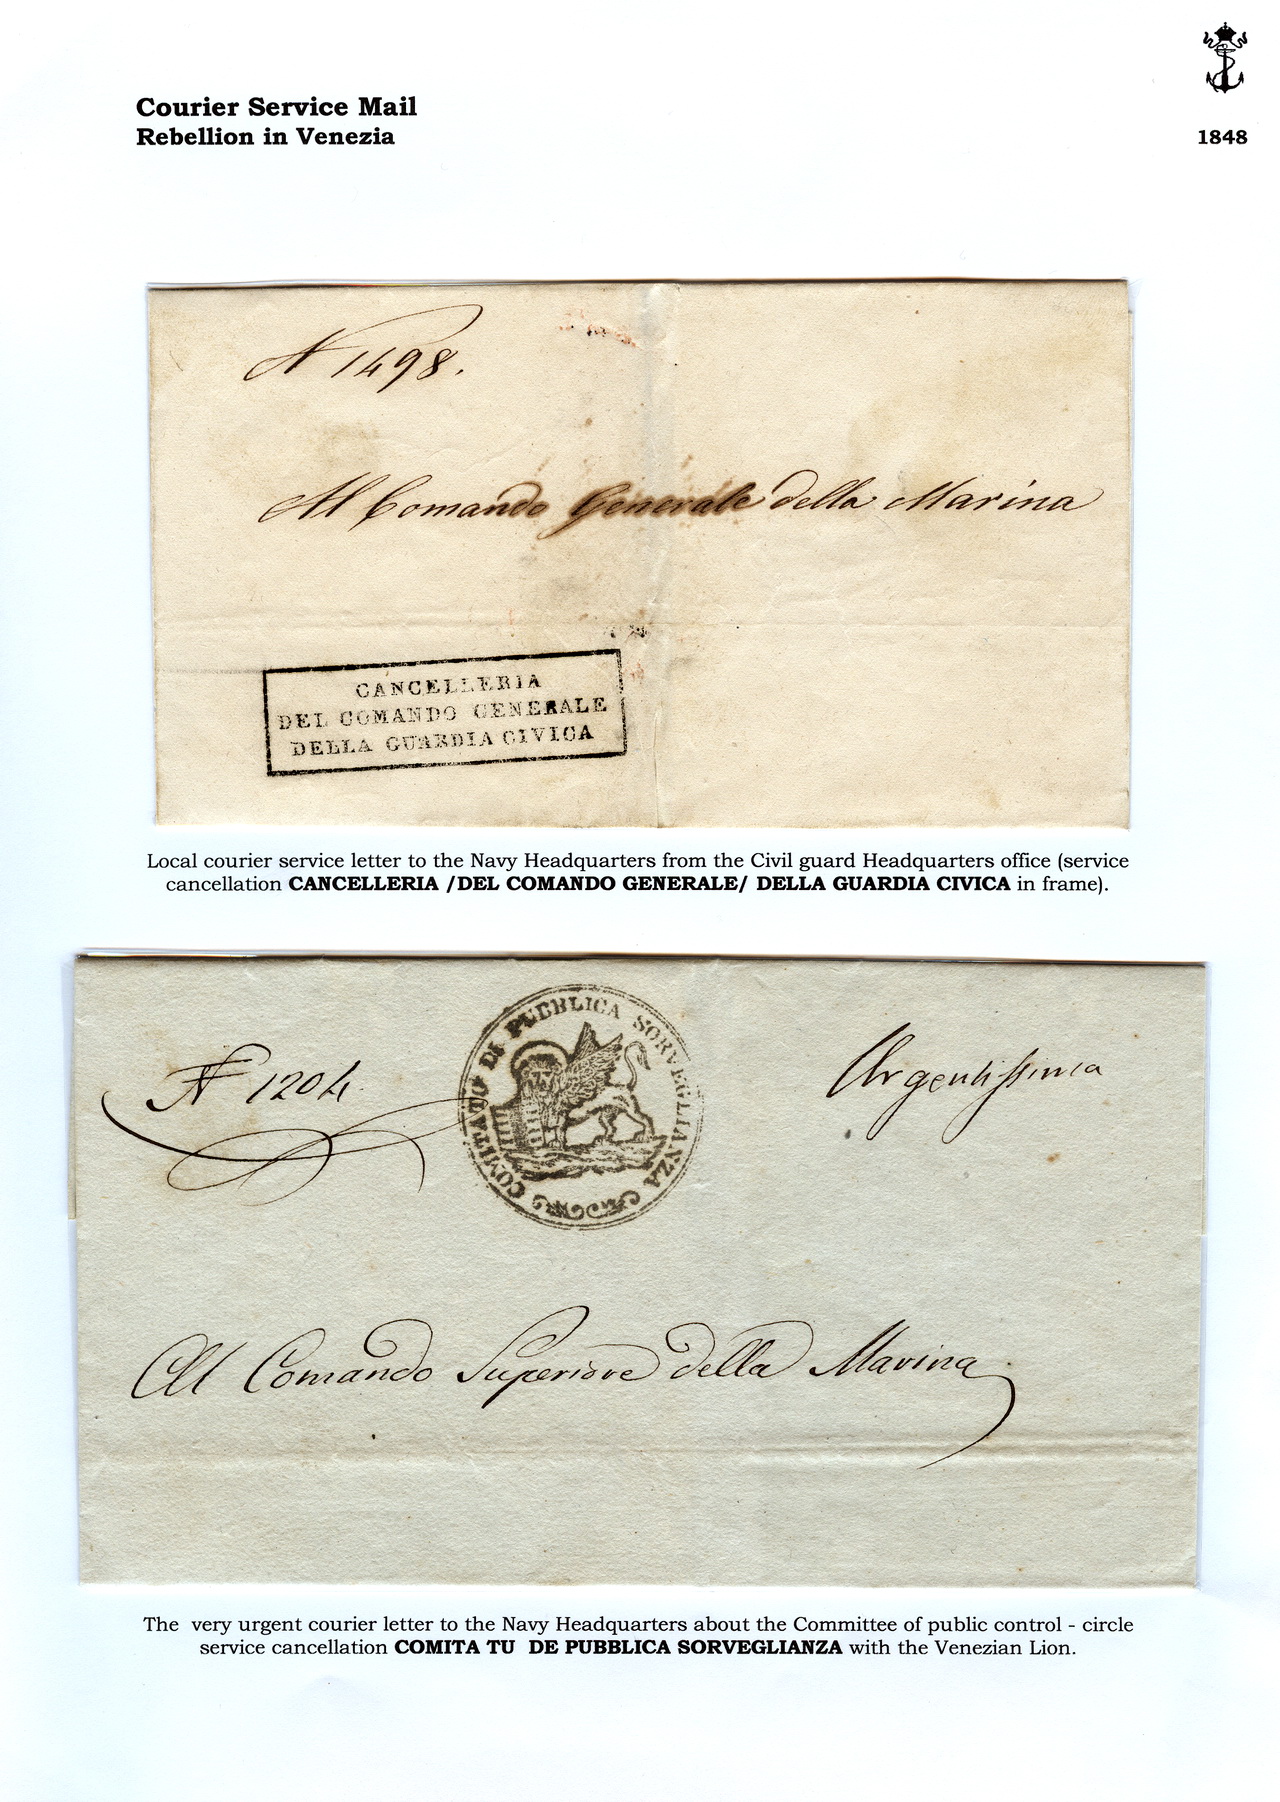 Courier Service Mail
Rebellion in Venezia
1848
N 1498.
Al Comando Generale della Marina
CANCELLERIA
DEL COMANDO GENERALE
DELLA GUARDIA CIVICA
Local courier service letter to the Navy Headquarters from the Civil guard Headquarters office (service
cancellation CANCELLERIA /DEL COMANDO GENERALE/ DELLA GUARDIA CIVICA in frame).
N 1204.
COMITATO DI PUBBLICA SORVEGLIANZA
Urgentissima
Al Comando Superiore della Marina
The very urgent courier letter to the Navy Headquarters about the Committee of public control - circle
service cancellation COMITA TU DE PUBBLICA SORVEGLIANZA with the Venezian Lion.